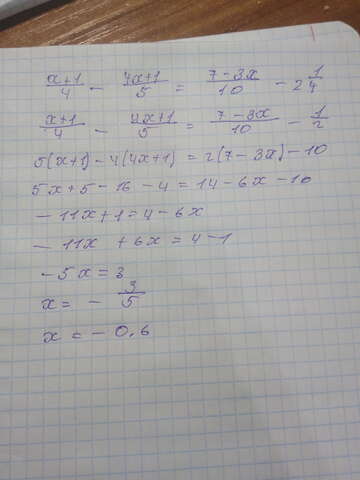 x+1/4 - 4x+1/5 = 7-3x/10 - 2 1/4
x+1/4 - 4x+1/5 = 7-3x/10 - 1/2
5(x+1) - 4(4x+1) = 2(7-3x) - 10
5x+5-16-4=14-6x-10
-11x+1=4-6x
-11x +6x=4-1
-5x=3
x= - 3/5
x = - 0,6